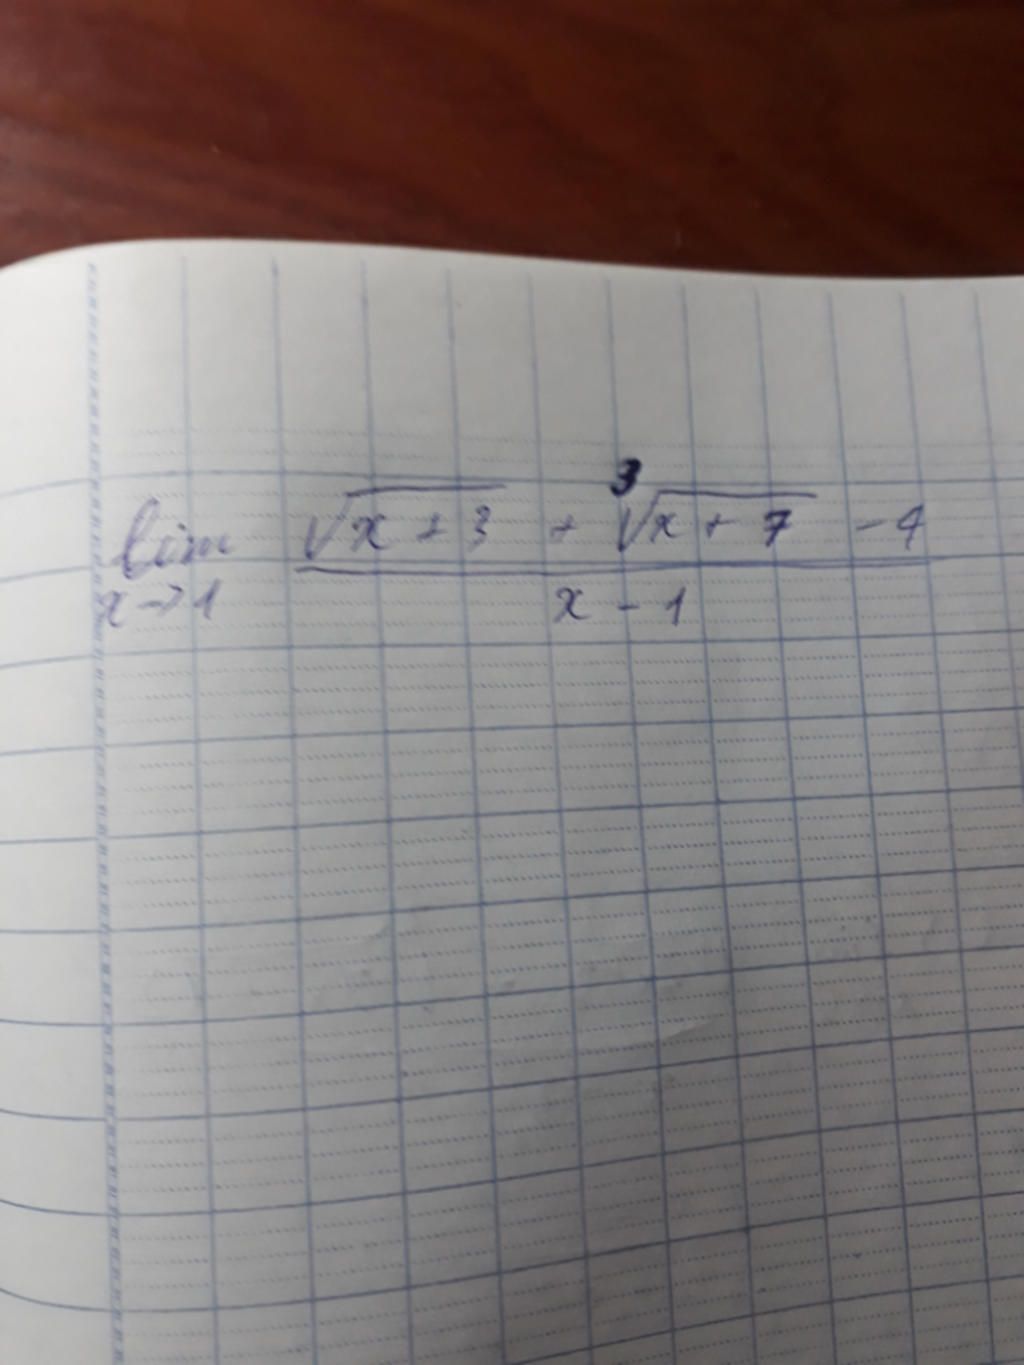 lim x→1 (√(x + 3) + ³√(x + 7) - 4) / (x - 1)